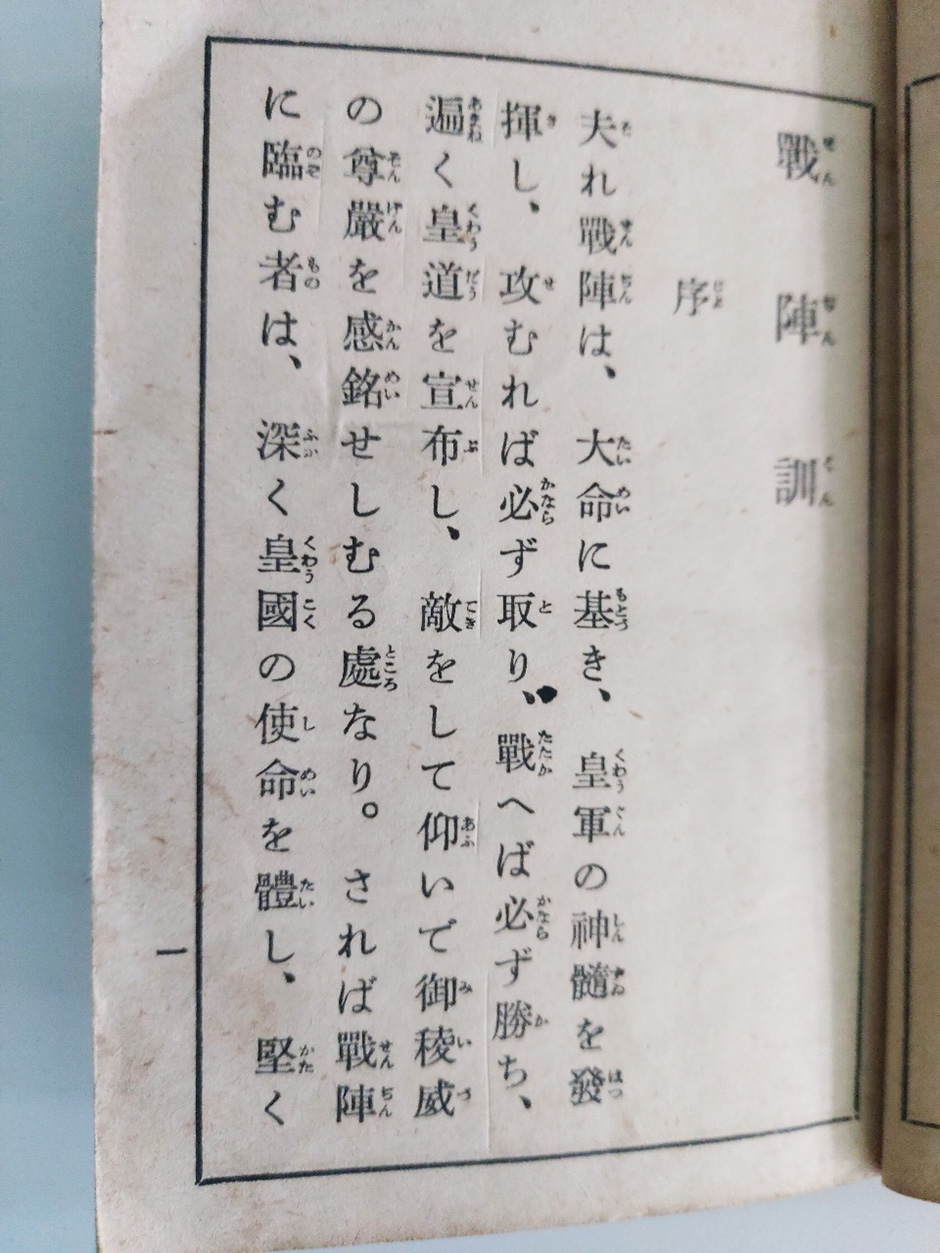 戰陣訓
序
夫れ戰陣は、大命に基き、皇軍の神髓を發
揮し、攻むれば必ず取り、戰へば必ず勝ち、
遍く皇道を宣布し、敵をして仰いで御稜威
の尊嚴を感銘せしむる處なり。されば戰陣
に臨む者は、深く皇國の使命を體し、堅く
一